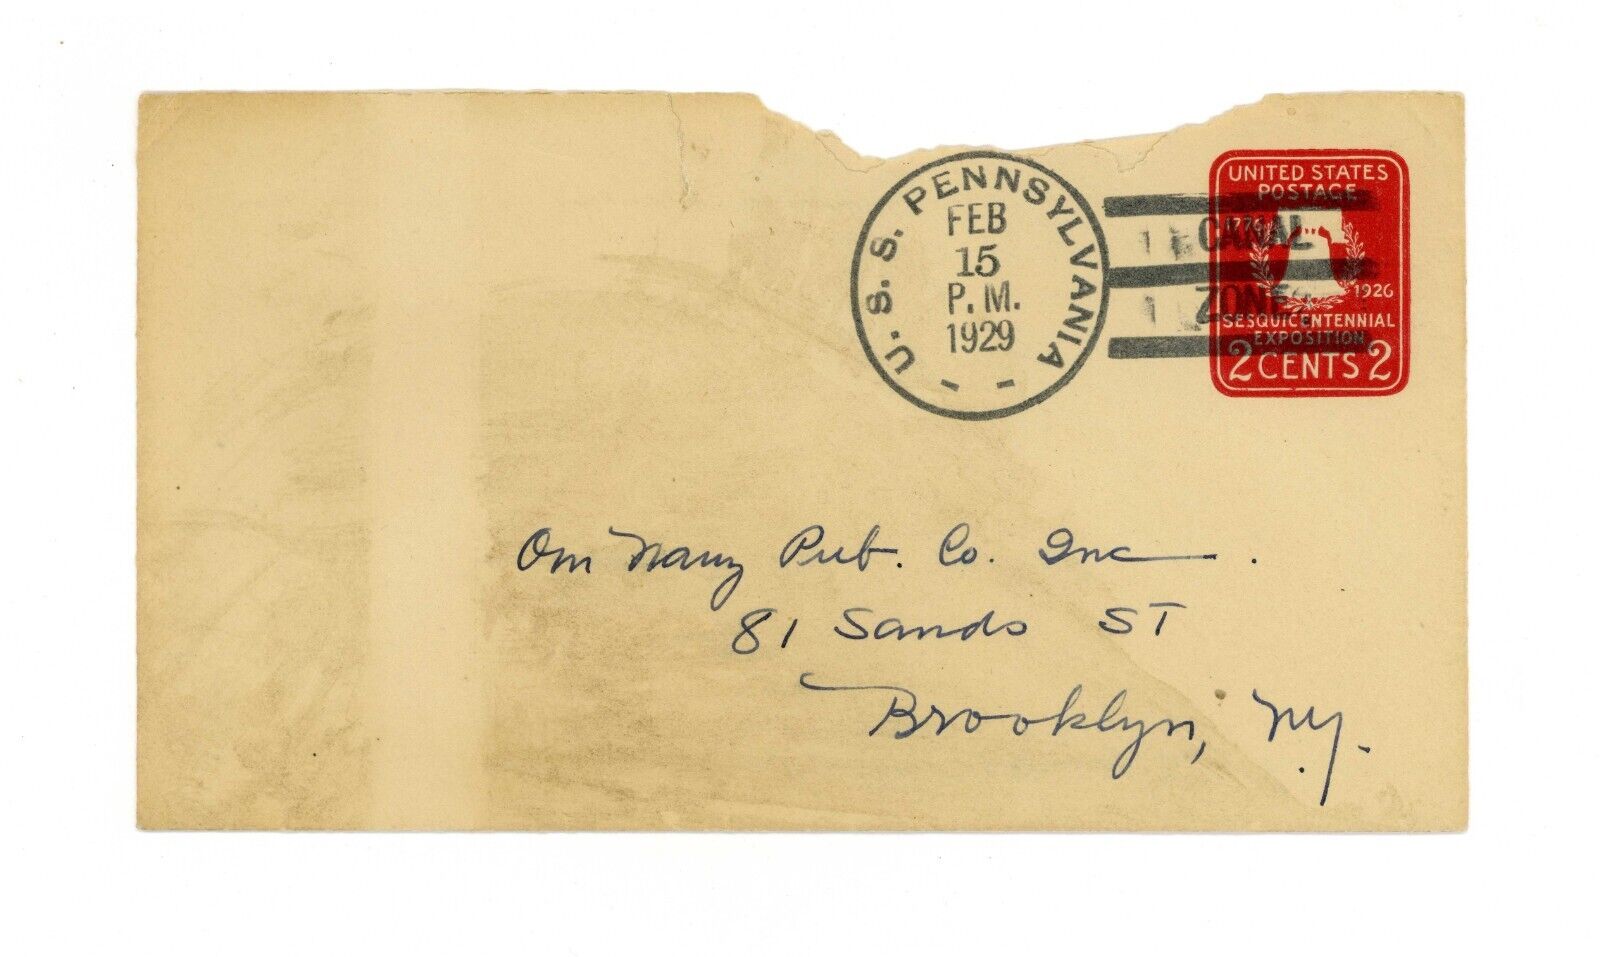 U. S. S. PENNSYLVANIA
FEB
15
P. M.
1929
CANAL
ZONE
UNITED STATES
POSTAGE
1776
1926
SESQUICENTENNIAL
EXPOSITION
2 CENTS 2
Our Navy Pub. Co. Inc.
81 Sands ST
Brooklyn, NY.